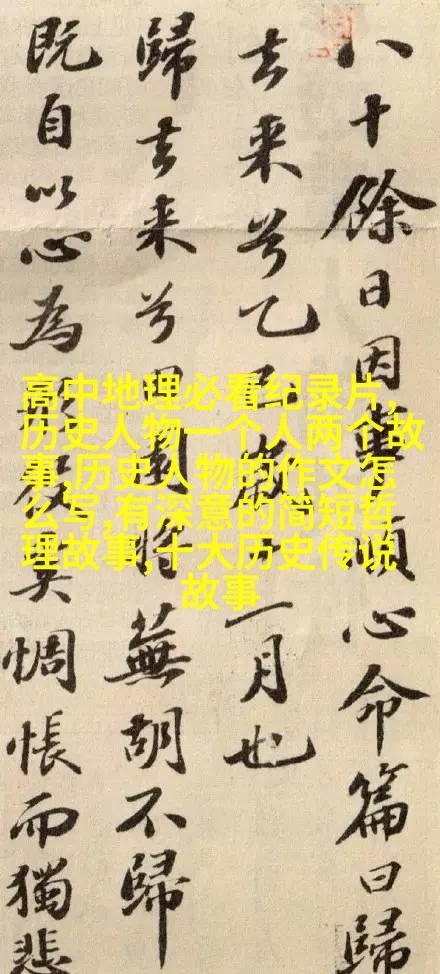 八十餘日因事順心命篇曰歸
去来兮乙巳歲十一月也
歸去来兮田園将蕪胡不歸
既自以心為形役奚惆悵而獨悲
高中地理必看纪录片,
历史人物一个人两个故
事,历史人物的作文怎
么写,有深意的简短哲
理故事,十大历史传说
故事